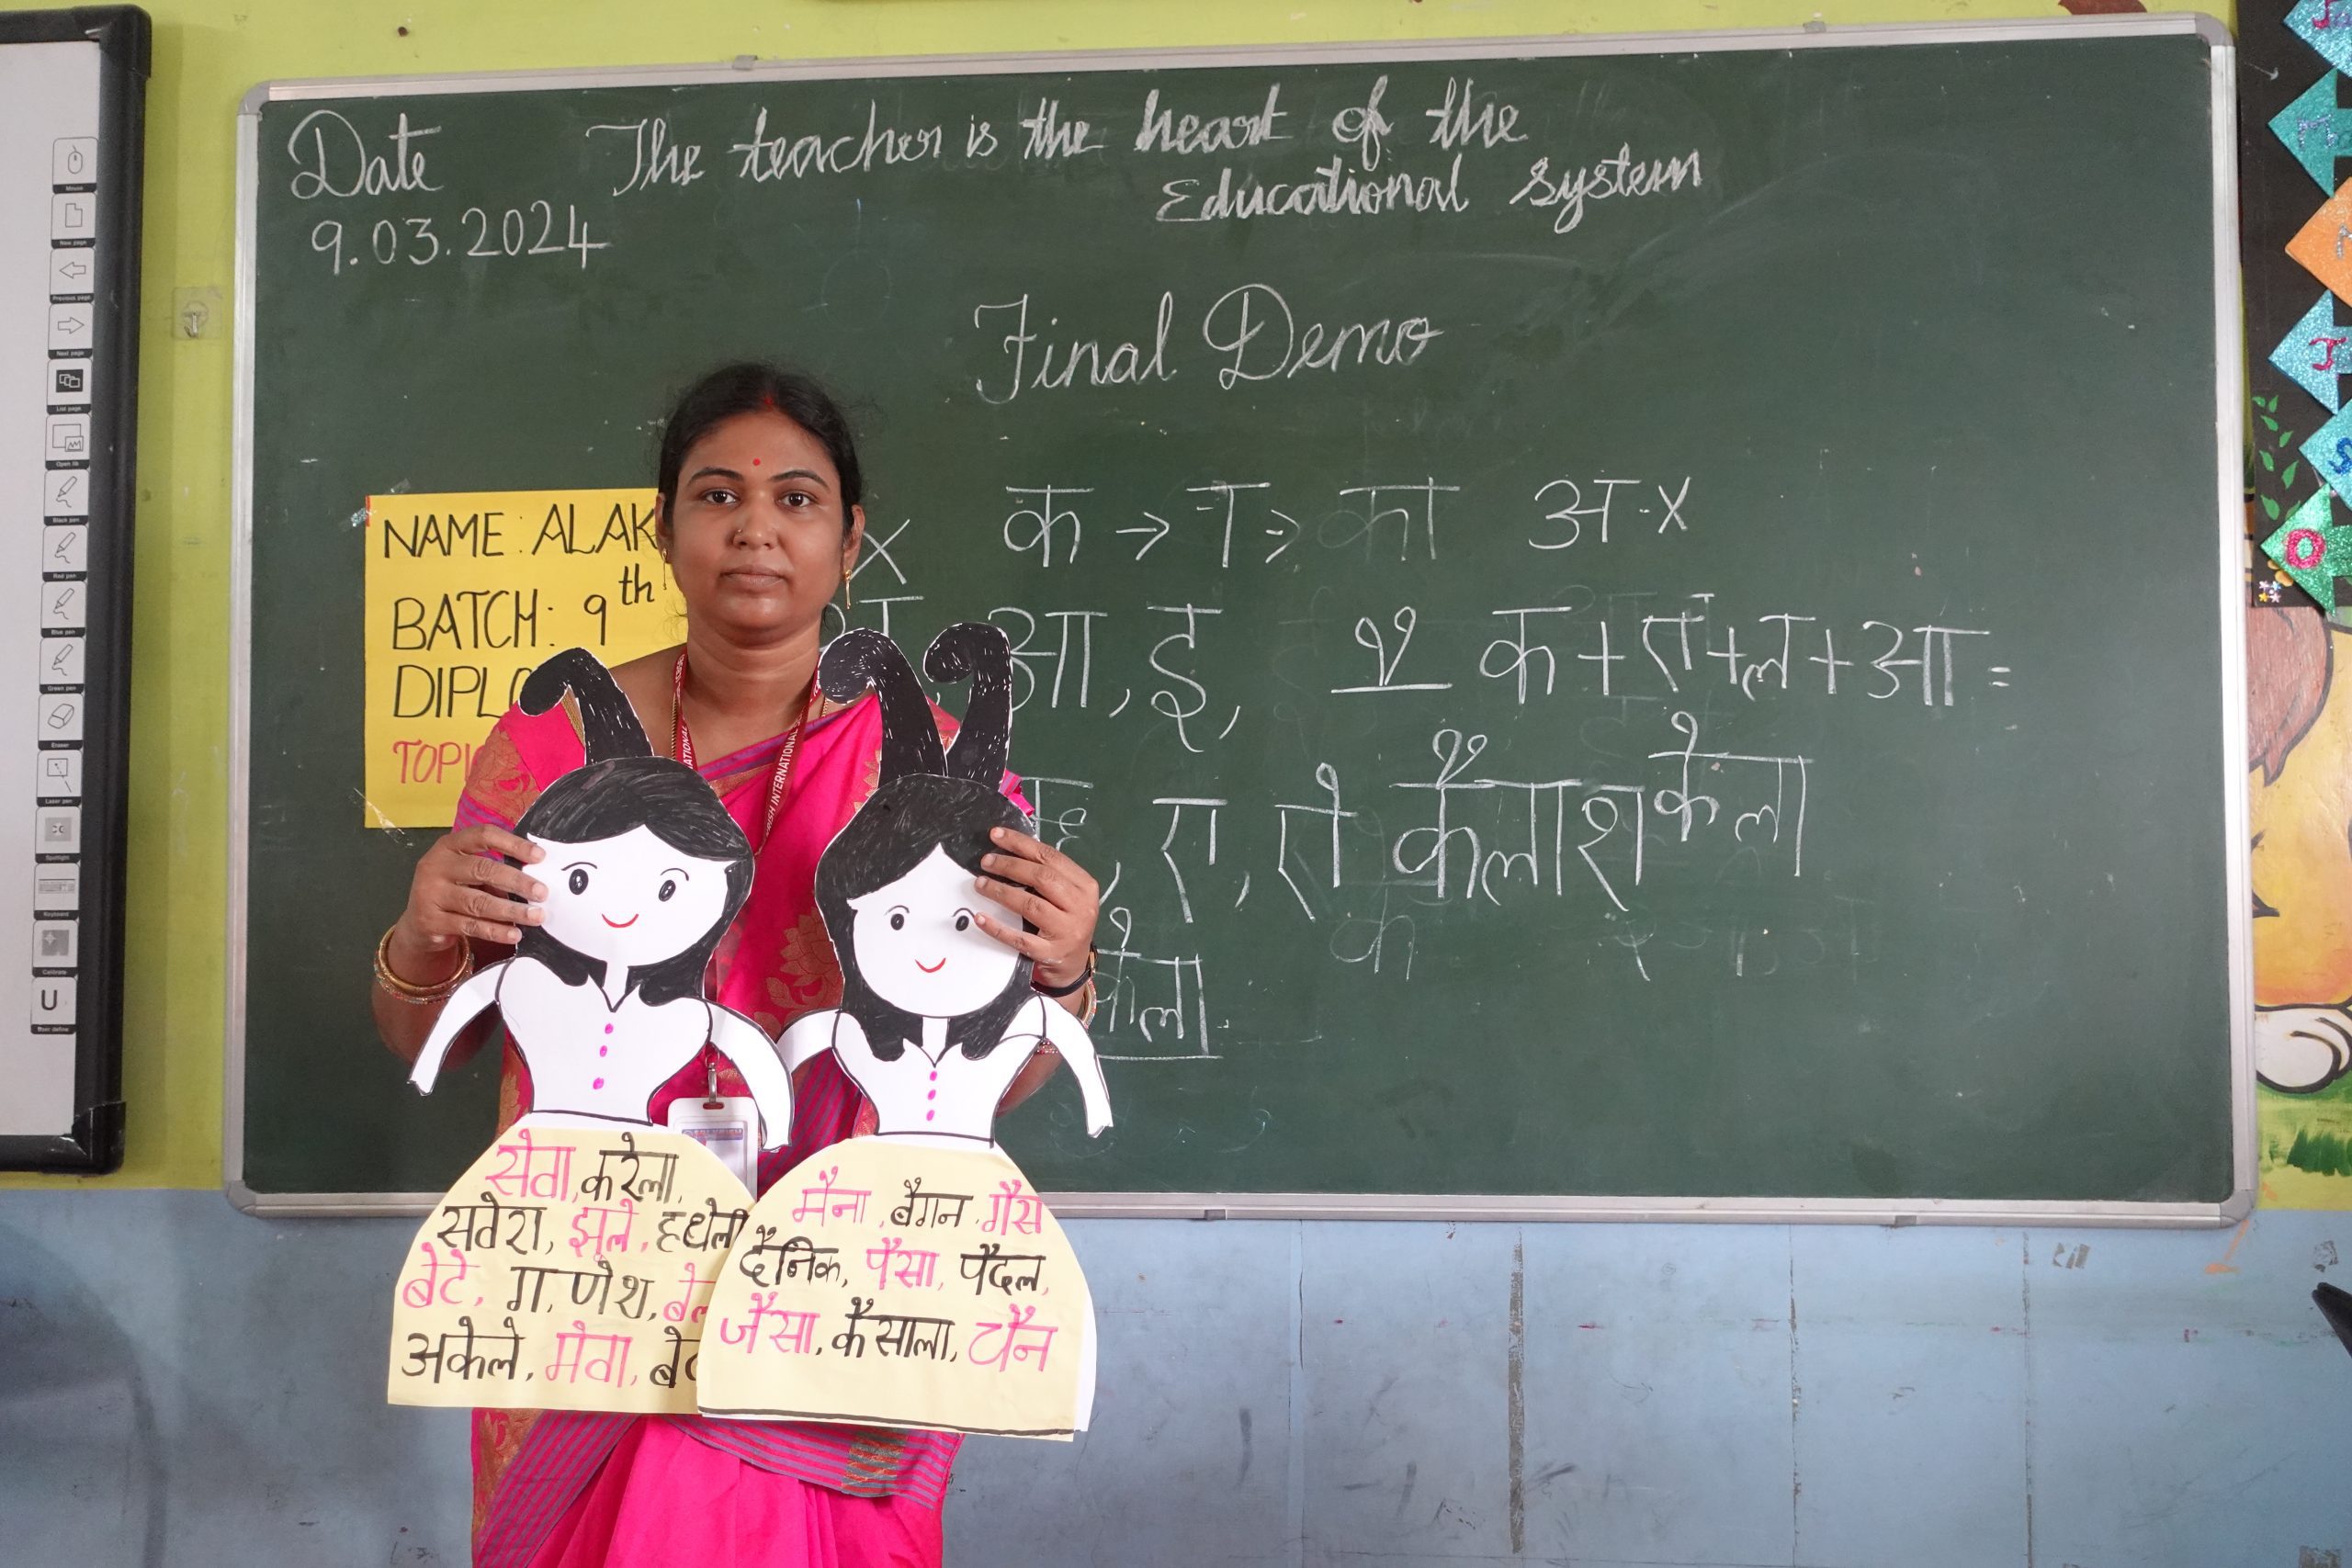 Date
9.03.2024
The teacher is the heart of the
Educational system
Final Demo
NAME: ALAK
BATCH: 9th
DIPLO
TOPIC
x क → ा => का अ-x
आ, इ,
क + ए + ल + आ =
ए, ऐ कैलाश केला
केला
सेवा, करेला,
सवेरा, झूले, हथेली
बेटे, ग,णेश, बेल
अकेले, मेवा, बे
मैना, बैगन, गैस
दैनिक, पैसा, पैदल,
जैसा, कैसाला, चैन
INTERNATIONAL
Mouse
New page
Previous page
Next page
List page
Open file
Black pen
Red pen
Blue pen
Green pen
Eraser
Laser pen
Spotlight
Keyboard
Calibrate
U